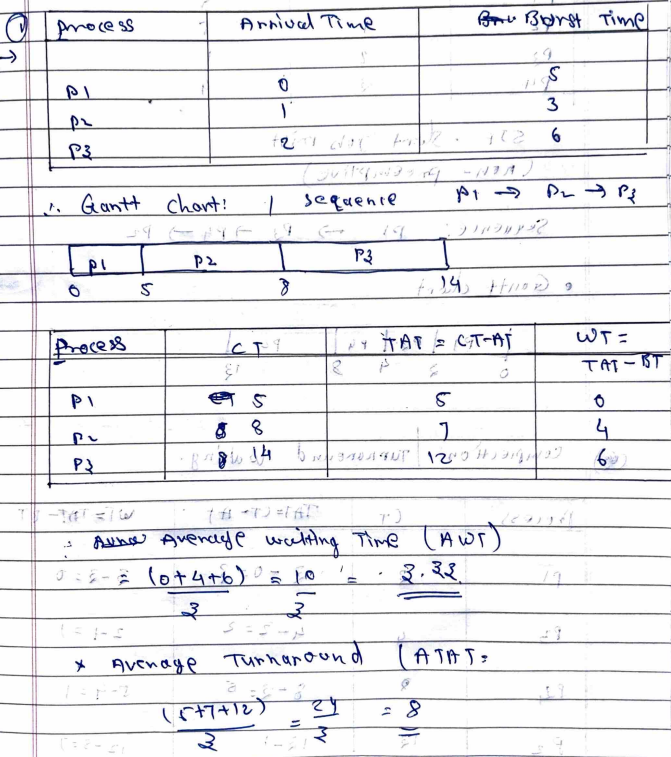 ① Process Arrival Time Burst Time
→
P1 0 5
P2 1 3
P3 2 6
∴ Gantt chart: | sequence P1 → P2 → P3
P1 P2 P3
0 5 8 14
Process CT TAT = CT-AT WT =
TAT - BT
P1 5 5 0
P2 8 7 4
P3 14 12 6
∴ Average waiting Time (AWT)
= (0+4+6) = 10 = 3.33
3 3
* Average Turnaround (ATAT =
(5+7+12) = 24 = 8
3 3